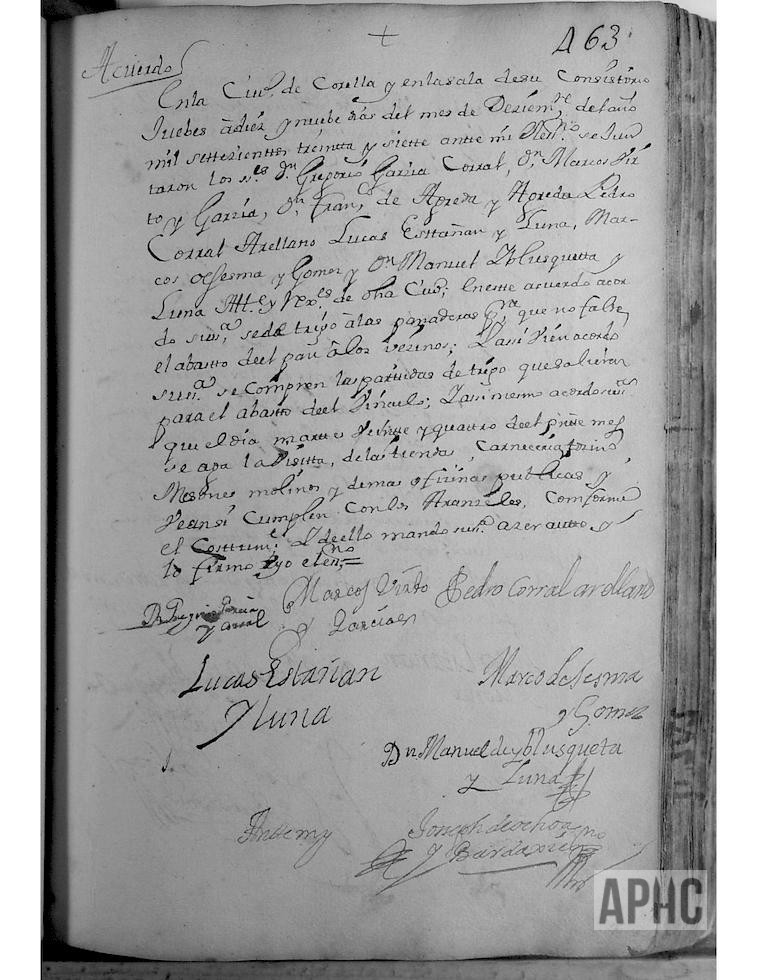 +
463
Acuerdo
En la Ciud. de Corella y en la sala de su Consistorio
Juebes à diez y nuebe dias del mes de Deziem.re del año
mil settezienttos treintta y siette antte mi el es.no se jun
taron los s.res D.n Gregorio Garzia Corral, D.n Marcos Vir
to y Garzia, D.n Fran.co de Agreda y Agreda Pedro
Corral Arellano Lucas Esttañan y Luna, Mar-
cos de Sesma y Gomez y D.n Manuel Yblusquetta y
Luna Alld.e y Rex.es de dha Ciud; en este acuerdo acor
do su s.a se dè trigo à las panaderas p.a que no falte
el abastto deel pan à los vezinos; Y assi vien acordo
su s.a se compren las partidas de trigo que salieren
para el abastto deel Vinculo; Y assi mesmo acordo su s.a
que el dia martes veintte y quattro deel pntte mes
se aga la visitta, de las tiendas, Carneceria, tozino
Mesones molinos y demas ofizinas publicas y
Vean si Cumplen con los Aranzeles, Comforme
el Costtum.e; Y de ello mando su s.a azer autto y
lo firmo e yo el es.no =
Dn Gregorio Garcia
y Corral
Marcos Virto
y Garcia
Pedro Corral arellano
Lucas Estañan
y luna
Marco de Sesma
y Gomez
Dn Manuel de yblusqueta
y Luna
Ante my
Joseph de ochoa
y Bardaxi es.no
APHC